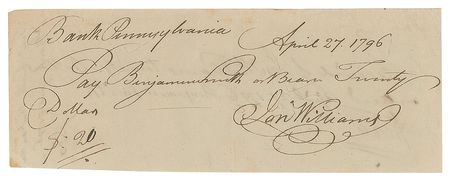 Bank Pennsylvania April 27. 1796
Pay Benjamin Smith or Bearer Twenty
Dollars
$: 20 Jonn Williams